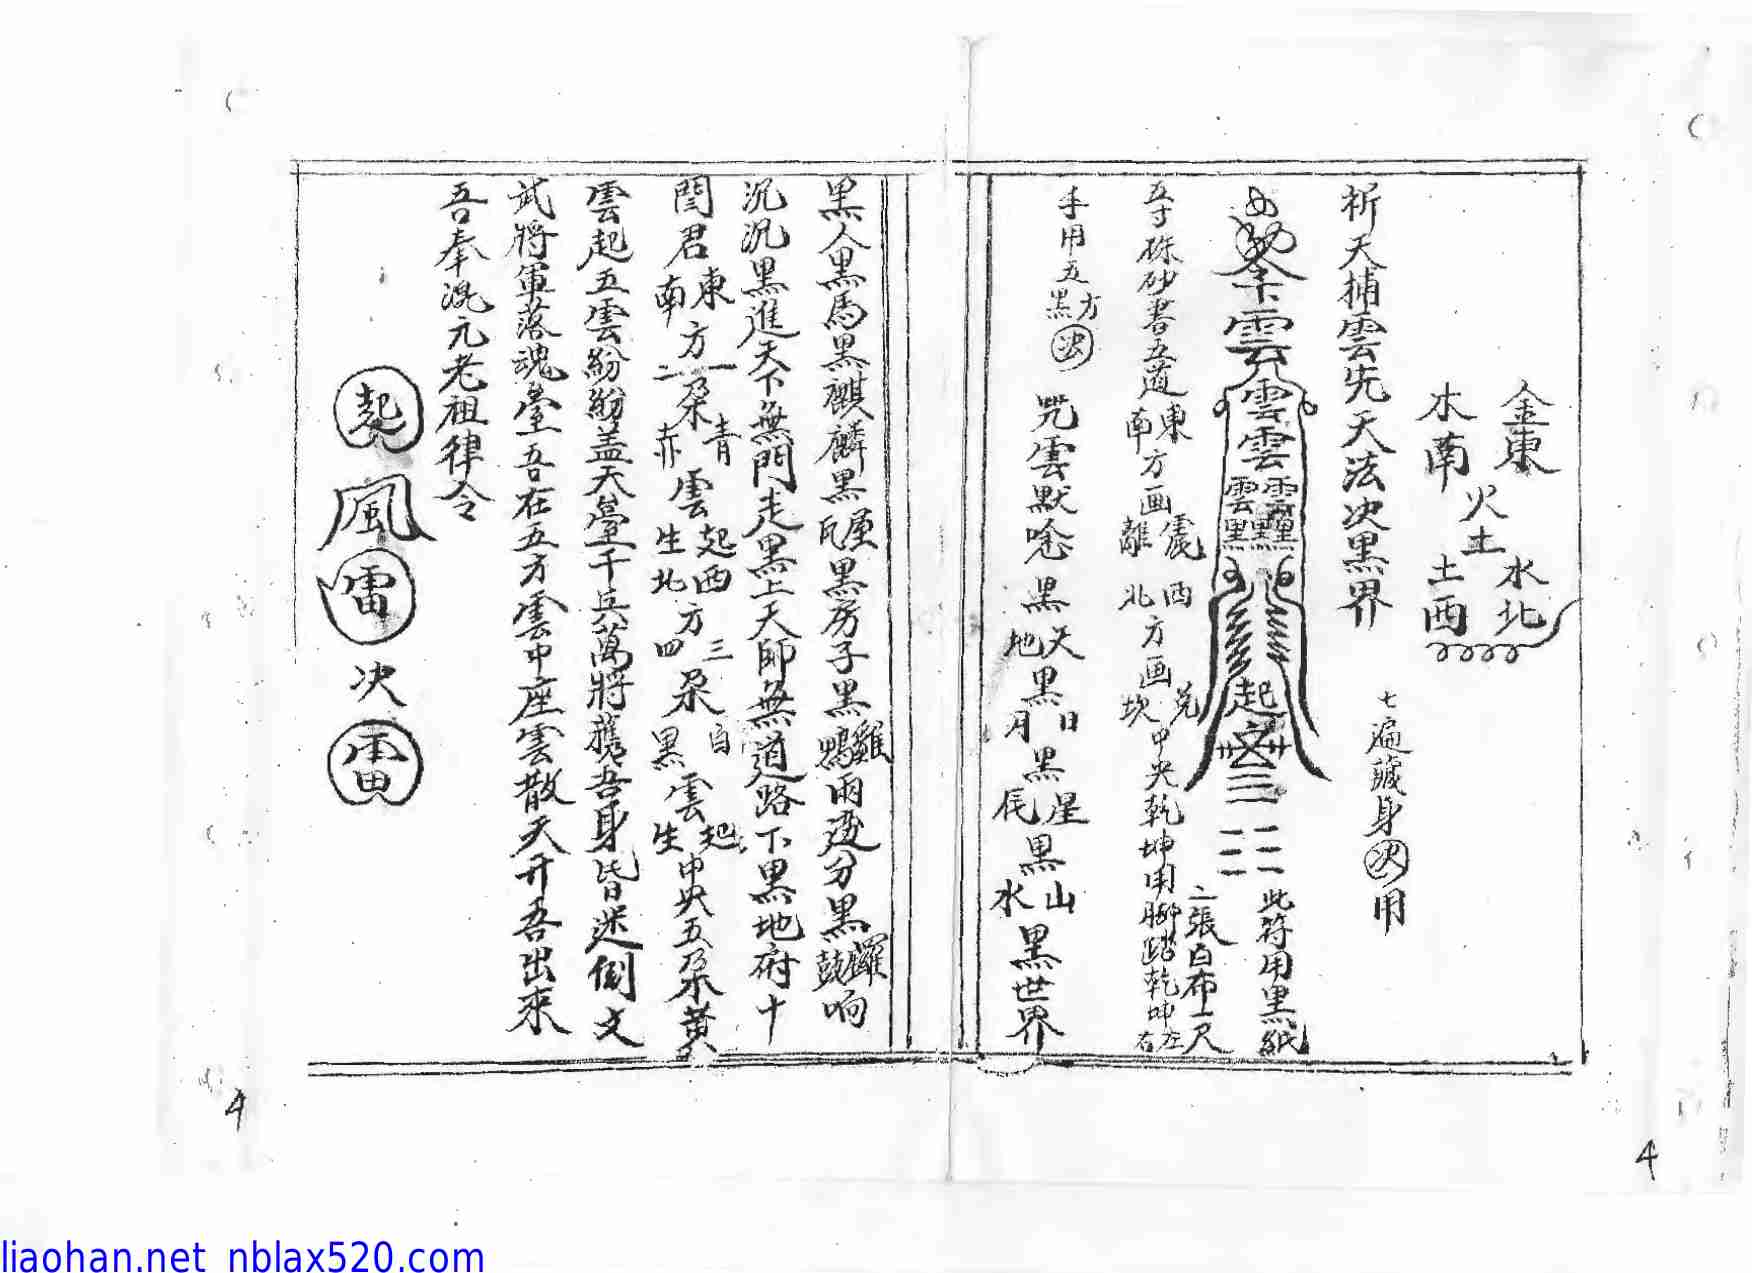 金東 水北
火土
木南 土西
七遍藏身決用
祈天捕雲先天法決黑界
雲雲雲雲雲黑黑黑起
此符用黑紙
二張白布二尺
五寸硃砂書五道東南方画震離西北方画兌坎中央乾坤用脚踏乾坤左右
手用五方黑決 咒雲默唸黑天地黑日月黑星辰黑山水黑世界
黑人黑馬黑麒麟黑屋瓦黑房子黑雞鴨兩邊分黑鑼鼓响
沉沉黑進天下無門走黑上天師無道路下黑地府十
閻君東南方一二朵青赤雲起生西北方三四朵白黑雲起生中央五朵黃
雲起五雲紛紛蓋天臺千兵萬將護吾身皆迷倒文
武將軍落魂臺吾在五方雲中座雲散天开吾出來
吾奉混元老祖律令
起風雷決雷
4
4
liaohan.net nblax520.com